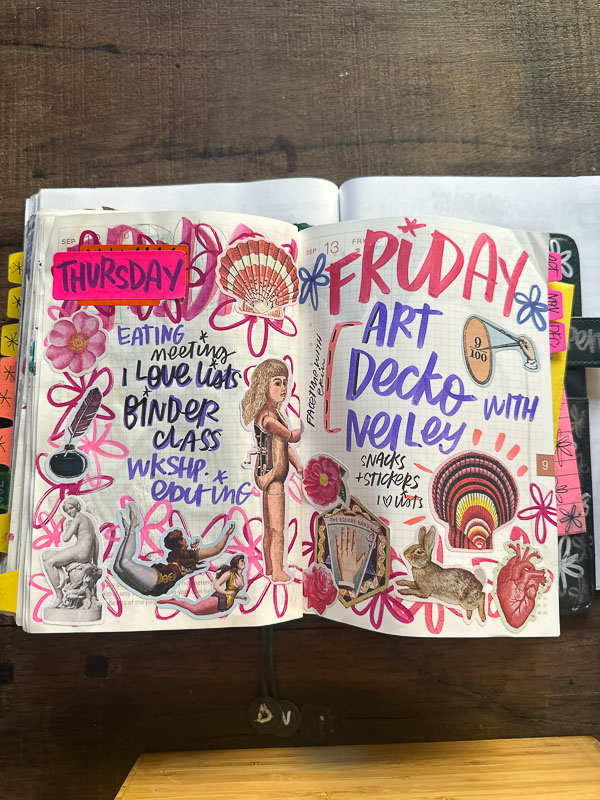 SEP
THURSDAY
EATING
meeting
I LOVE LISTS
BINDER
CLASS
WKSHP.
editing
SEP 13 FRI
FRIDAY
FACETIME WITH
ART
Decko WITH
Nelley
SNACKS
+ STICKERS
I ♡ LISTS
9
100
THE SQUARE HAND
9
OCT
NOV
DV